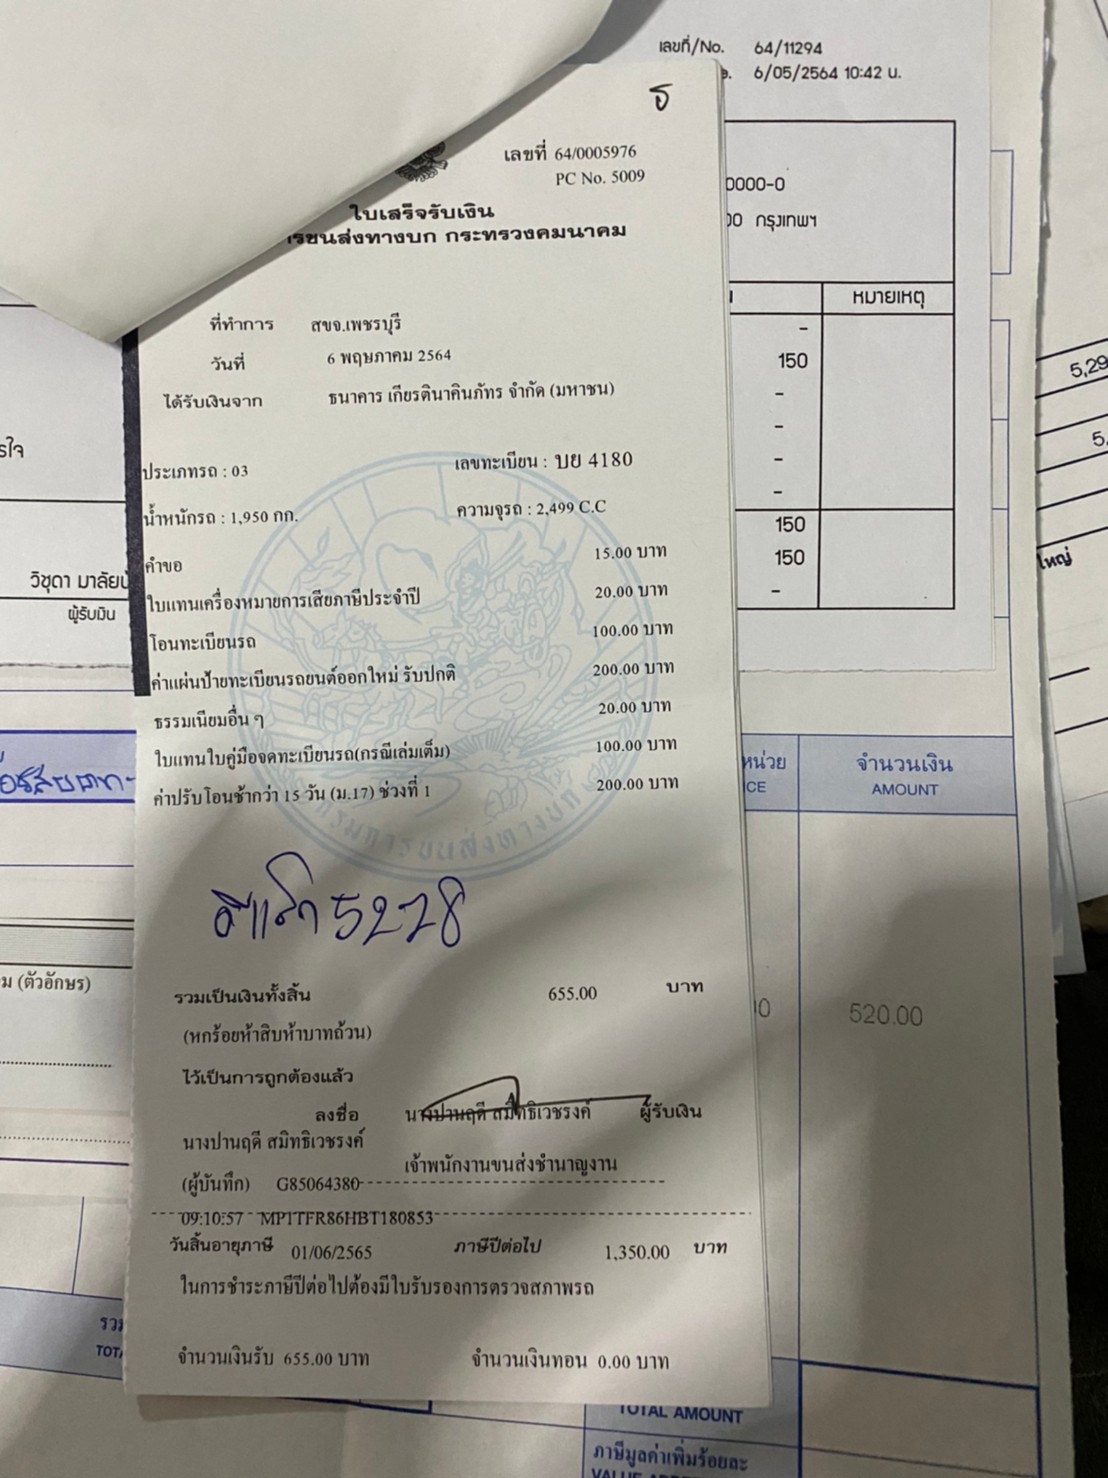 เลขที่/No. 64/11294
6/05/2564 10:42 น.
0000-0
กรุงเทพฯ
หมายเหตุ
-
150
-
-
-
-
150
150
-
5,29
5,
ใหญ่
วิชุดา
ผู้รับเงิน
ธ
เลขที่ 64/0005976
PC No. 5009
ใบเสร็จรับเงิน
รขนส่งทางบก กระทรวงคมนาคม
ที่ทำการ สขจ.เพชรบุรี
วันที่ 6 พฤษภาคม 2564
ได้รับเงินจาก ธนาคาร เกียรตินาคินภัทร จำกัด (มหาชน)
ประเภทรถ : 03 เลขทะเบียน : บย 4180
น้ำหนักรถ : 1,950 กก. ความจุรถ : 2,499 C.C
คำขอ 15.00 บาท
ใบแทนเครื่องหมายการเสียภาษีประจำปี 20.00 บาท
โอนทะเบียนรถ 100.00 บาท
ค่าแผ่นป้ายทะเบียนรถยนต์ออกใหม่ รับปกติ 200.00 บาท
ธรรมเนียมอื่น ๆ 20.00 บาท
ใบแทนใบคู่มือจดทะเบียนรถ(กรณีเล่มเต็ม) 100.00 บาท
ค่าปรับโอนช้ากว่า 15 วัน (ม.17) ช่วงที่ 1 200.00 บาท
กรมการขนส่งทางบก
5228
รวมเป็นเงินทั้งสิ้น 655.00 บาท
(หกร้อยห้าสิบห้าบาทถ้วน)
ไว้เป็นการถูกต้องแล้ว
ลงชื่อ นางปานฤดี สมิทธิเวชรงค์ ผู้รับเงิน
นางปานฤดี สมิทธิเวชรงค์
เจ้าพนักงานขนส่งชำนาญงาน
(ผู้บันทึก) G85064380
09:10:57 MP1TFR86HBT180853
วันสิ้นอายุภาษี 01/06/2565 ภาษีปีต่อไป 1,350.00 บาท
ในการชำระภาษีปีต่อไปต้องมีใบรับรองการตรวจสภาพรถ
จำนวนเงินรับ 655.00 บาท จำนวนเงินทอน 0.00 บาท
หน่วย
CE
จำนวนเงิน
AMOUNT
520.00
(ตัวอักษร)
TOTAL AMOUNT
ภาษีมูลค่าเพิ่มร้อยละ